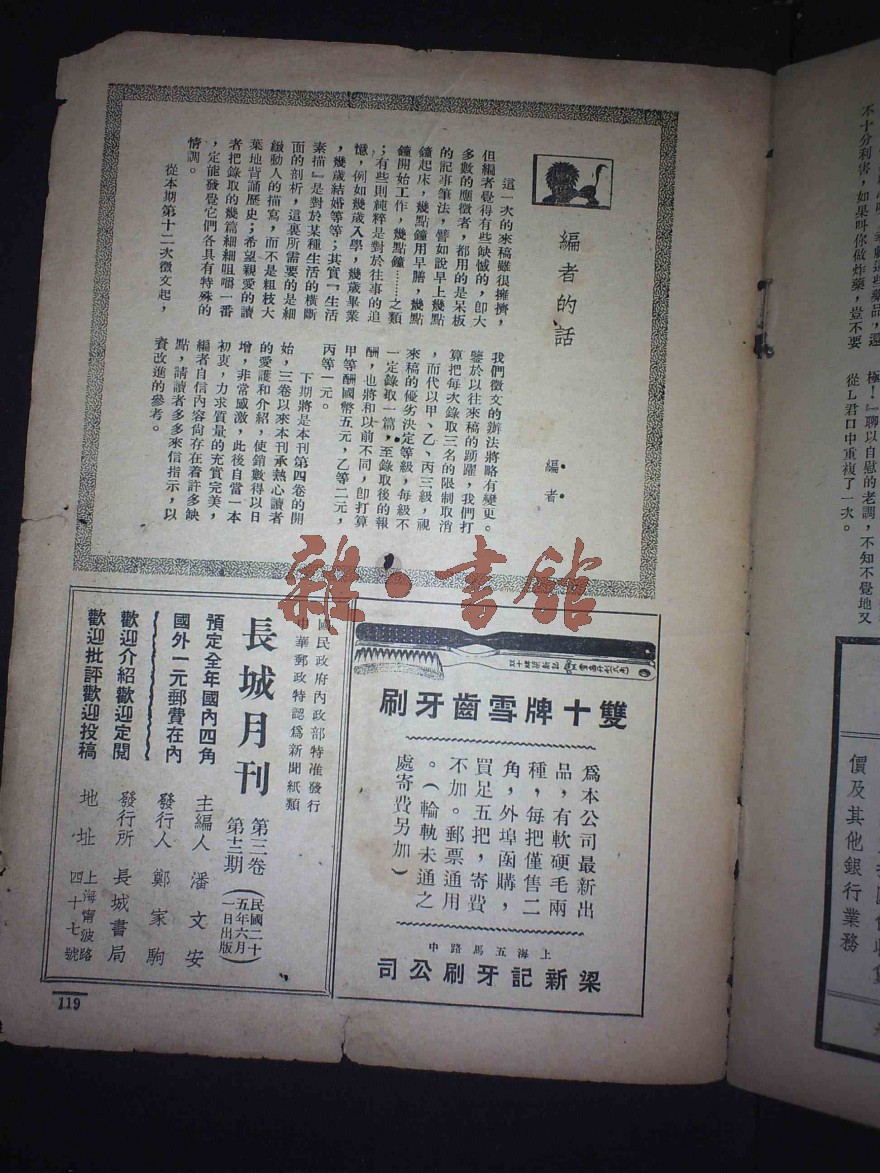 不十分利害，如果叫你做炸藥，豈不要
極！』聊以自慰的老調，不知不覺地又
從L君口中重複了一次。
價及其他銀行業務
編者的話
編者
這一次的來稿雖很擁擠，
但編者覺得有些缺憾的，卽大
多數的應徵者，都用的是呆板
的記事筆法，譬如說早上幾點
鐘起床，幾點鐘用早膳，幾點
鐘開始工作，幾點鐘……之類
；有些則純粹是對於往事的追
憶，例如幾歲入學，幾歲畢業
，幾歲結婚等等；其實『生活
素描』是對於某種生活的橫斷
面的剖析，這裏所需要的是細
緻動人的描寫，而不是粗枝大
葉地背誦歷史；希望親愛的讀
者把錄取的幾篇細細咀嚼一番
，定能發覺它們各具有特殊的
情調。
從本期第十二次徵文起，
我們徵文的辦法將略有變更。
鑒於以往來稿的踴躍，我們打
算把每次錄取三名的限制取消
，而代以甲、乙、丙三級，視
來稿的優劣決定等級，每級不
一定錄取一篇，至錄取後的報
酬，也將和以前不同，卽打算
甲等酬國幣五元，乙等二元，
丙等一元。
下期將是本刊第四卷的開
始，三卷以來本刊承熱心讀者
的愛護和介紹，使銷數得以日
增，非常感激，此後自當一本
初衷，力求質量的充實完美，
編者自信內容尙存在着許多缺
點，請讀者多多來信指示，以
資改進的參考。
雜·書館
雙十牌雪齒牙刷
爲本公司最新出
品，有軟硬毛兩
種，每把僅售二
角，外埠函購，
買足五把，寄費
不加。郵票通用
。（輪軌未通之
處寄費另加）
上海五馬路中
梁新記牙刷公司
國民政府內政部特准發行
中華郵政特認爲新聞紙類
長城月刊
第三卷
第十二期
（民國二十
五年六月
一日出版）
預定全年國內四角
國外一元郵費在內
歡迎介紹歡迎定閱
歡迎批評歡迎投稿
主編人 潘文安
發行人 鄭家駒
發行所 長城書局
地址 上海甯波路
四十七號
119